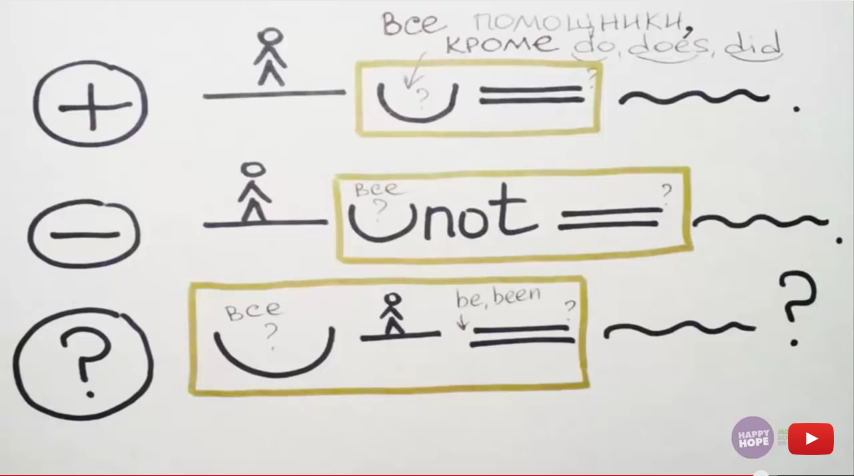 Все помощники,
кроме do, does, did
+ ? ? .
все
- ? not ? .
все be, been
? ? ? ?
HAPPY
HOPE